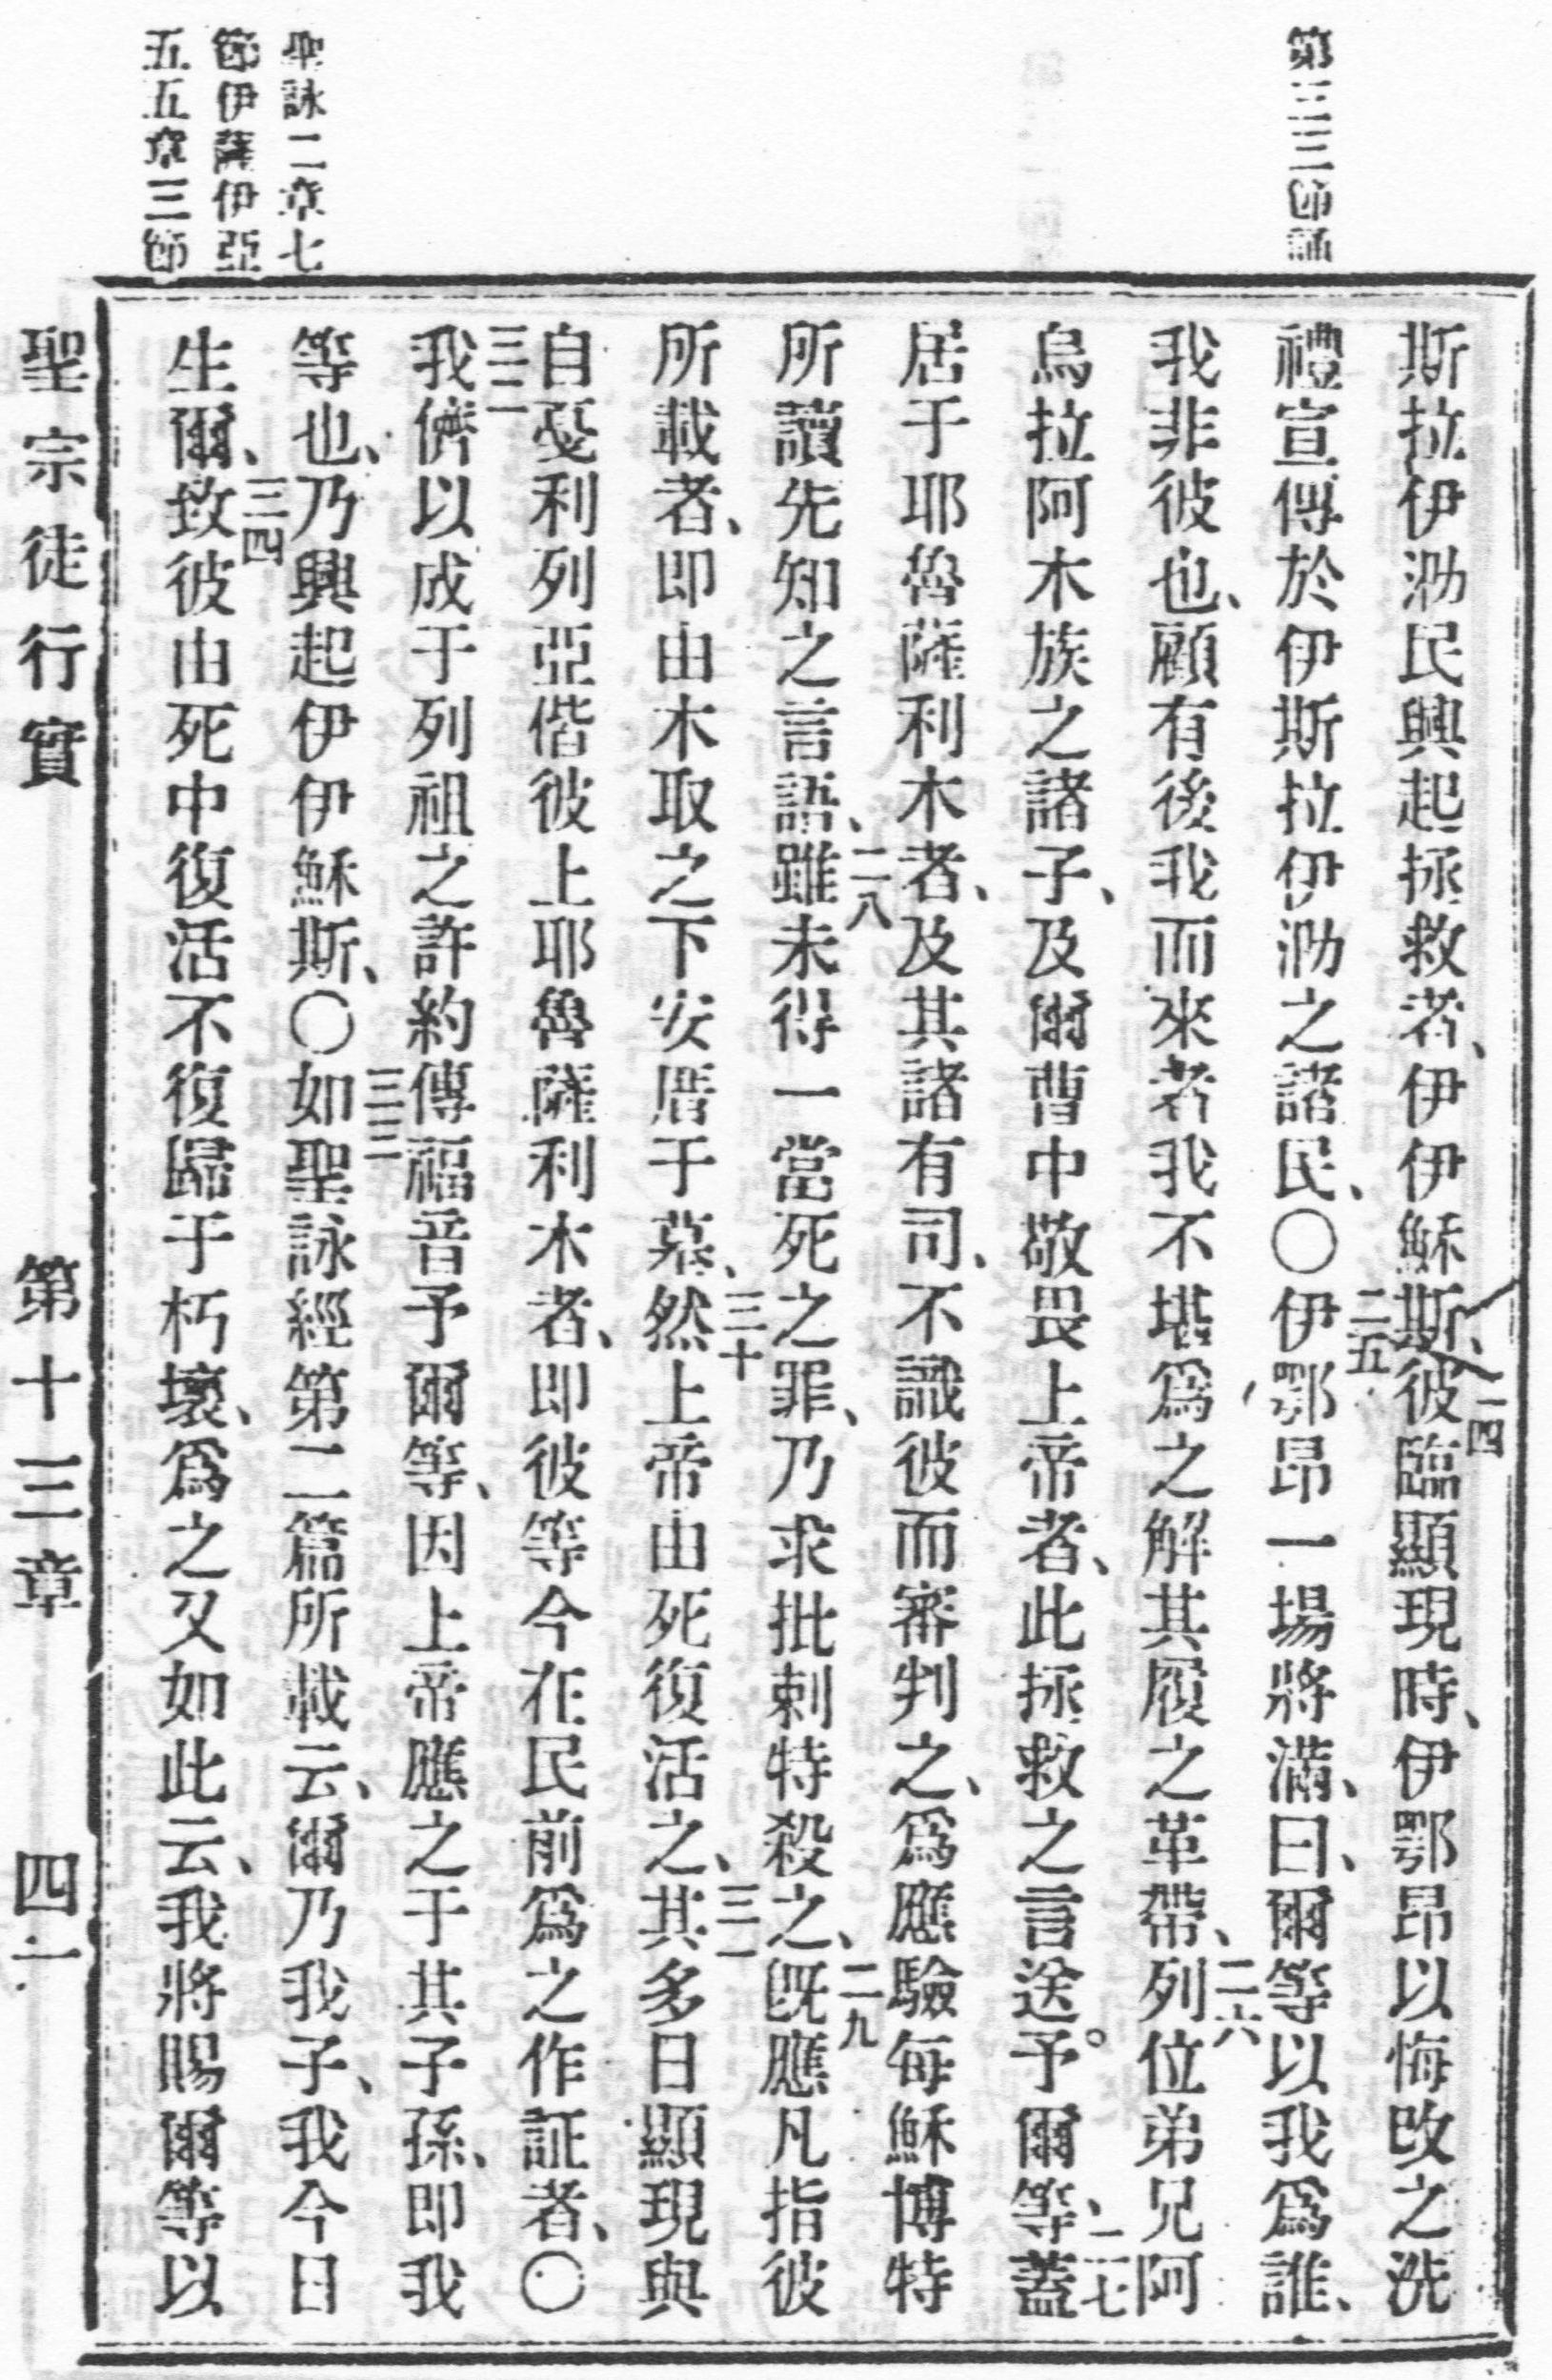 第三三節誦
聖詠二章七
節伊薩伊亞
五五章三節
斯拉伊泐民興起拯救者、伊伊穌斯、二四彼臨顯現時、伊鄂昂以悔改之洗
禮宣傳於伊斯拉伊泐之諸民、○二五伊鄂昂一場將滿、曰、爾等以我爲誰、
我非彼也、顧有後我而來者我不堪爲之解其履之革帶、二六列位弟兄阿
烏拉阿木族之諸子、及爾曹中敬畏上帝者、此拯救之言送予爾等、二七蓋
居于耶魯薩利木者、及其諸有司、不識彼而審判之、爲應驗每穌博特
所讀先知之言語、二八雖未得一當死之罪、乃求批剌特殺之、二九既應凡指彼
所載者、即由木取之下安厝于墓、三十然上帝由死復活之、三一其多日顯現與
自戞利列亞偕彼上耶魯薩利木者、即彼等今在民前爲之作証者、○
三二我儕以成于列祖之許約傳福音予爾等、因上帝應之于其子孫、即我
等也、乃興起伊伊穌斯、○三三如聖詠經第二篇所載云、爾乃我子、我今日
生爾、三四㪣彼由死中復活不復歸于朽壞、爲之又如此云、我將賜爾等以
聖宗徒行實 第十三章 四一